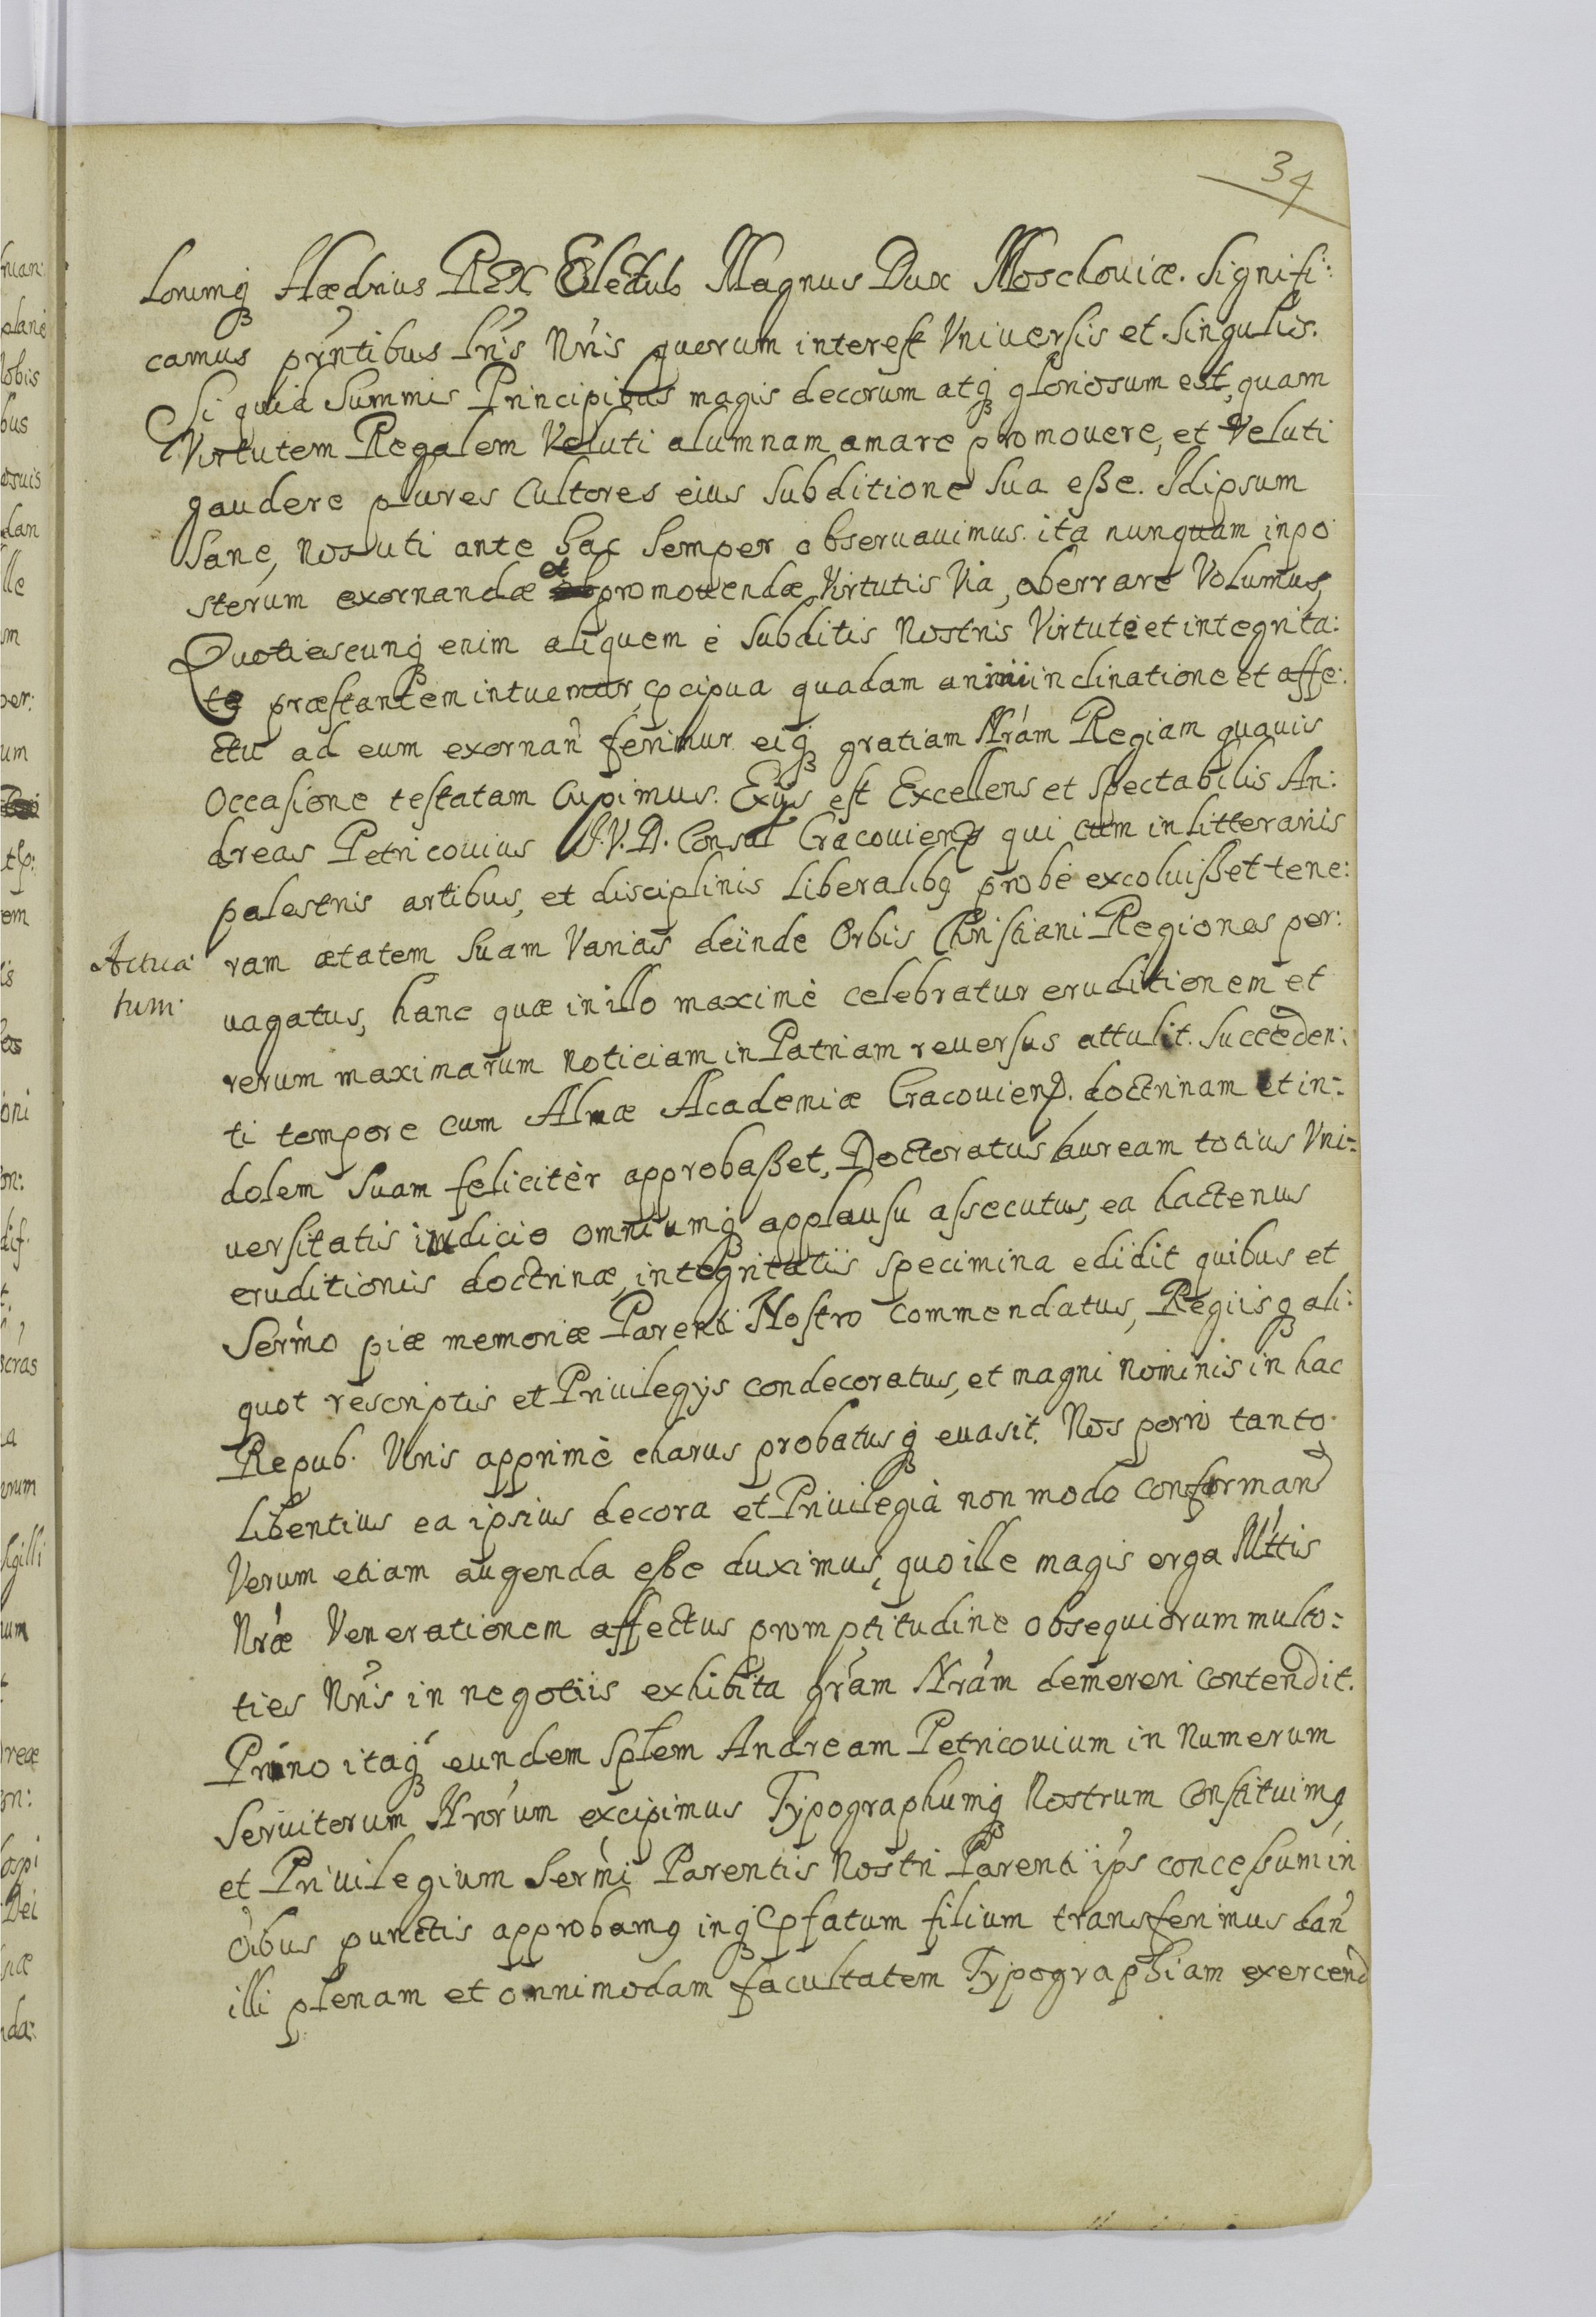 34
lorumq Hædrius REX Electus Magnus Dux Moschouiæ. Signifi:
camus pr̃ntibus Lr̃is Nr̃is quorum interest Vniuersis et Singulis.
Si quid Summis Principibus magis decorum atq gloriosum est, quam
Virtutem Regalem Veluti alumnam amare promouere, et Veluti
gaudere plures Cultores eius Subditione Sua eße. Idipsum
Sane, Nos uti ante hac Semper obseruauimus. ita nunquam inpo
sterum exornandæ et promouendæ Virtutis Via, aberrare Volumus,
Quotiescunq enim aliquem è Subditis Nostris Virtute et integrita:
te præstantem intuemur, pcipua quadam animi inclinatione et affe:
ctu ad eum exornañ ferimur eiq gratiam Nrám Regiam quauis
Occasione testatam Cupimus. Exijs est Excellens et Spectabilis An:
dreas Petricouius J.V.D. Consul Cracouien qui cum in Litterariis
palestris artibus, et disciplinis Liberalibq probè excoluißet tene:
Actua
tum
ram ætatem Suam Varias deinde Orbis Christiani Regiones per:
uagatus, hanc quæ in illo maximè celebratur eruditionem et
rerum maximarum Noticiam in Patriam reuersus attulit. Succeden:
ti tempore cum Almæ Academiæ Cracouien. doctrinam et in:
dolem Suam felicitèr approbaßet, Doctoratus lauream totius Vni:
uersitatis iudicio omniumq applausu assecutus, ea hactenus
eruditionis doctrinæ, integritatis specimina edidit quibus et
Sermo piæ memoriæ Parenti Nostro Commendatus, Regiisq ali:
quot rescriptis et Priuilegijs condecoratus, et magni Nominis in hac
Repub. Viris apprimè charus probatusq euasit. Nos porro tanto
Libentius ea ipsius decora et Priuilegia non modo Conforman
Verum etiam augenda eße duximus, quo ille magis erga Mttis
Nræ Venerationem affectus promptitudine obsequiorum multo:
ties Nr̃is in negotiis exhibita gram Nrám demereri contendit.
Primo itaq eundem Splem Andream Petricouium in Numerum
Seruitorum Nrorum excipimus Typographumq Nostrum Constituimq
et Priuilegium Sermi Parentis Nostri Parenti ips concessum in
oibus punctis approbamq inq pfatum filium transferimus dañ
illi plenam et omnimodam facultatem Typographiam exercend